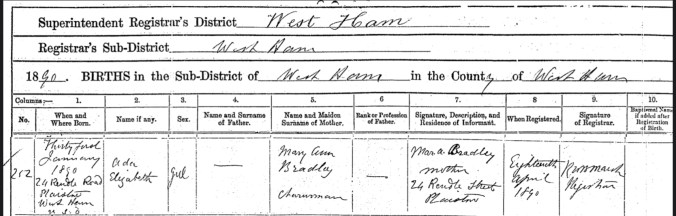 Superintendent Registrar's District West Ham
Registrar's Sub-District West Ham
1890. BIRTHS in the Sub-District of West Ham in the County of West Ham
Columns:— 1. 2. 3. 4. 5. 6 7. 8 9. 10.
No. When and Where Born. Name if any. Sex. Name and Surname of Father. Name and Maiden Surname of Mother. Rank or Profession of Father. Signature, Description, and Residence of Informant. When Registered. Signature of Registrar. Baptismal Name if added after Registration of Birth.
Thirty first
January
1890
24 Rendle Road
Plaistow
West Ham
Ada
Elizabeth
Girl
—
Mary Ann
Bradley
Charwoman
—
Mar a Bradley
mother
24 Rendle Street
Plaistow
Eighteenth
April
1890
Registrar